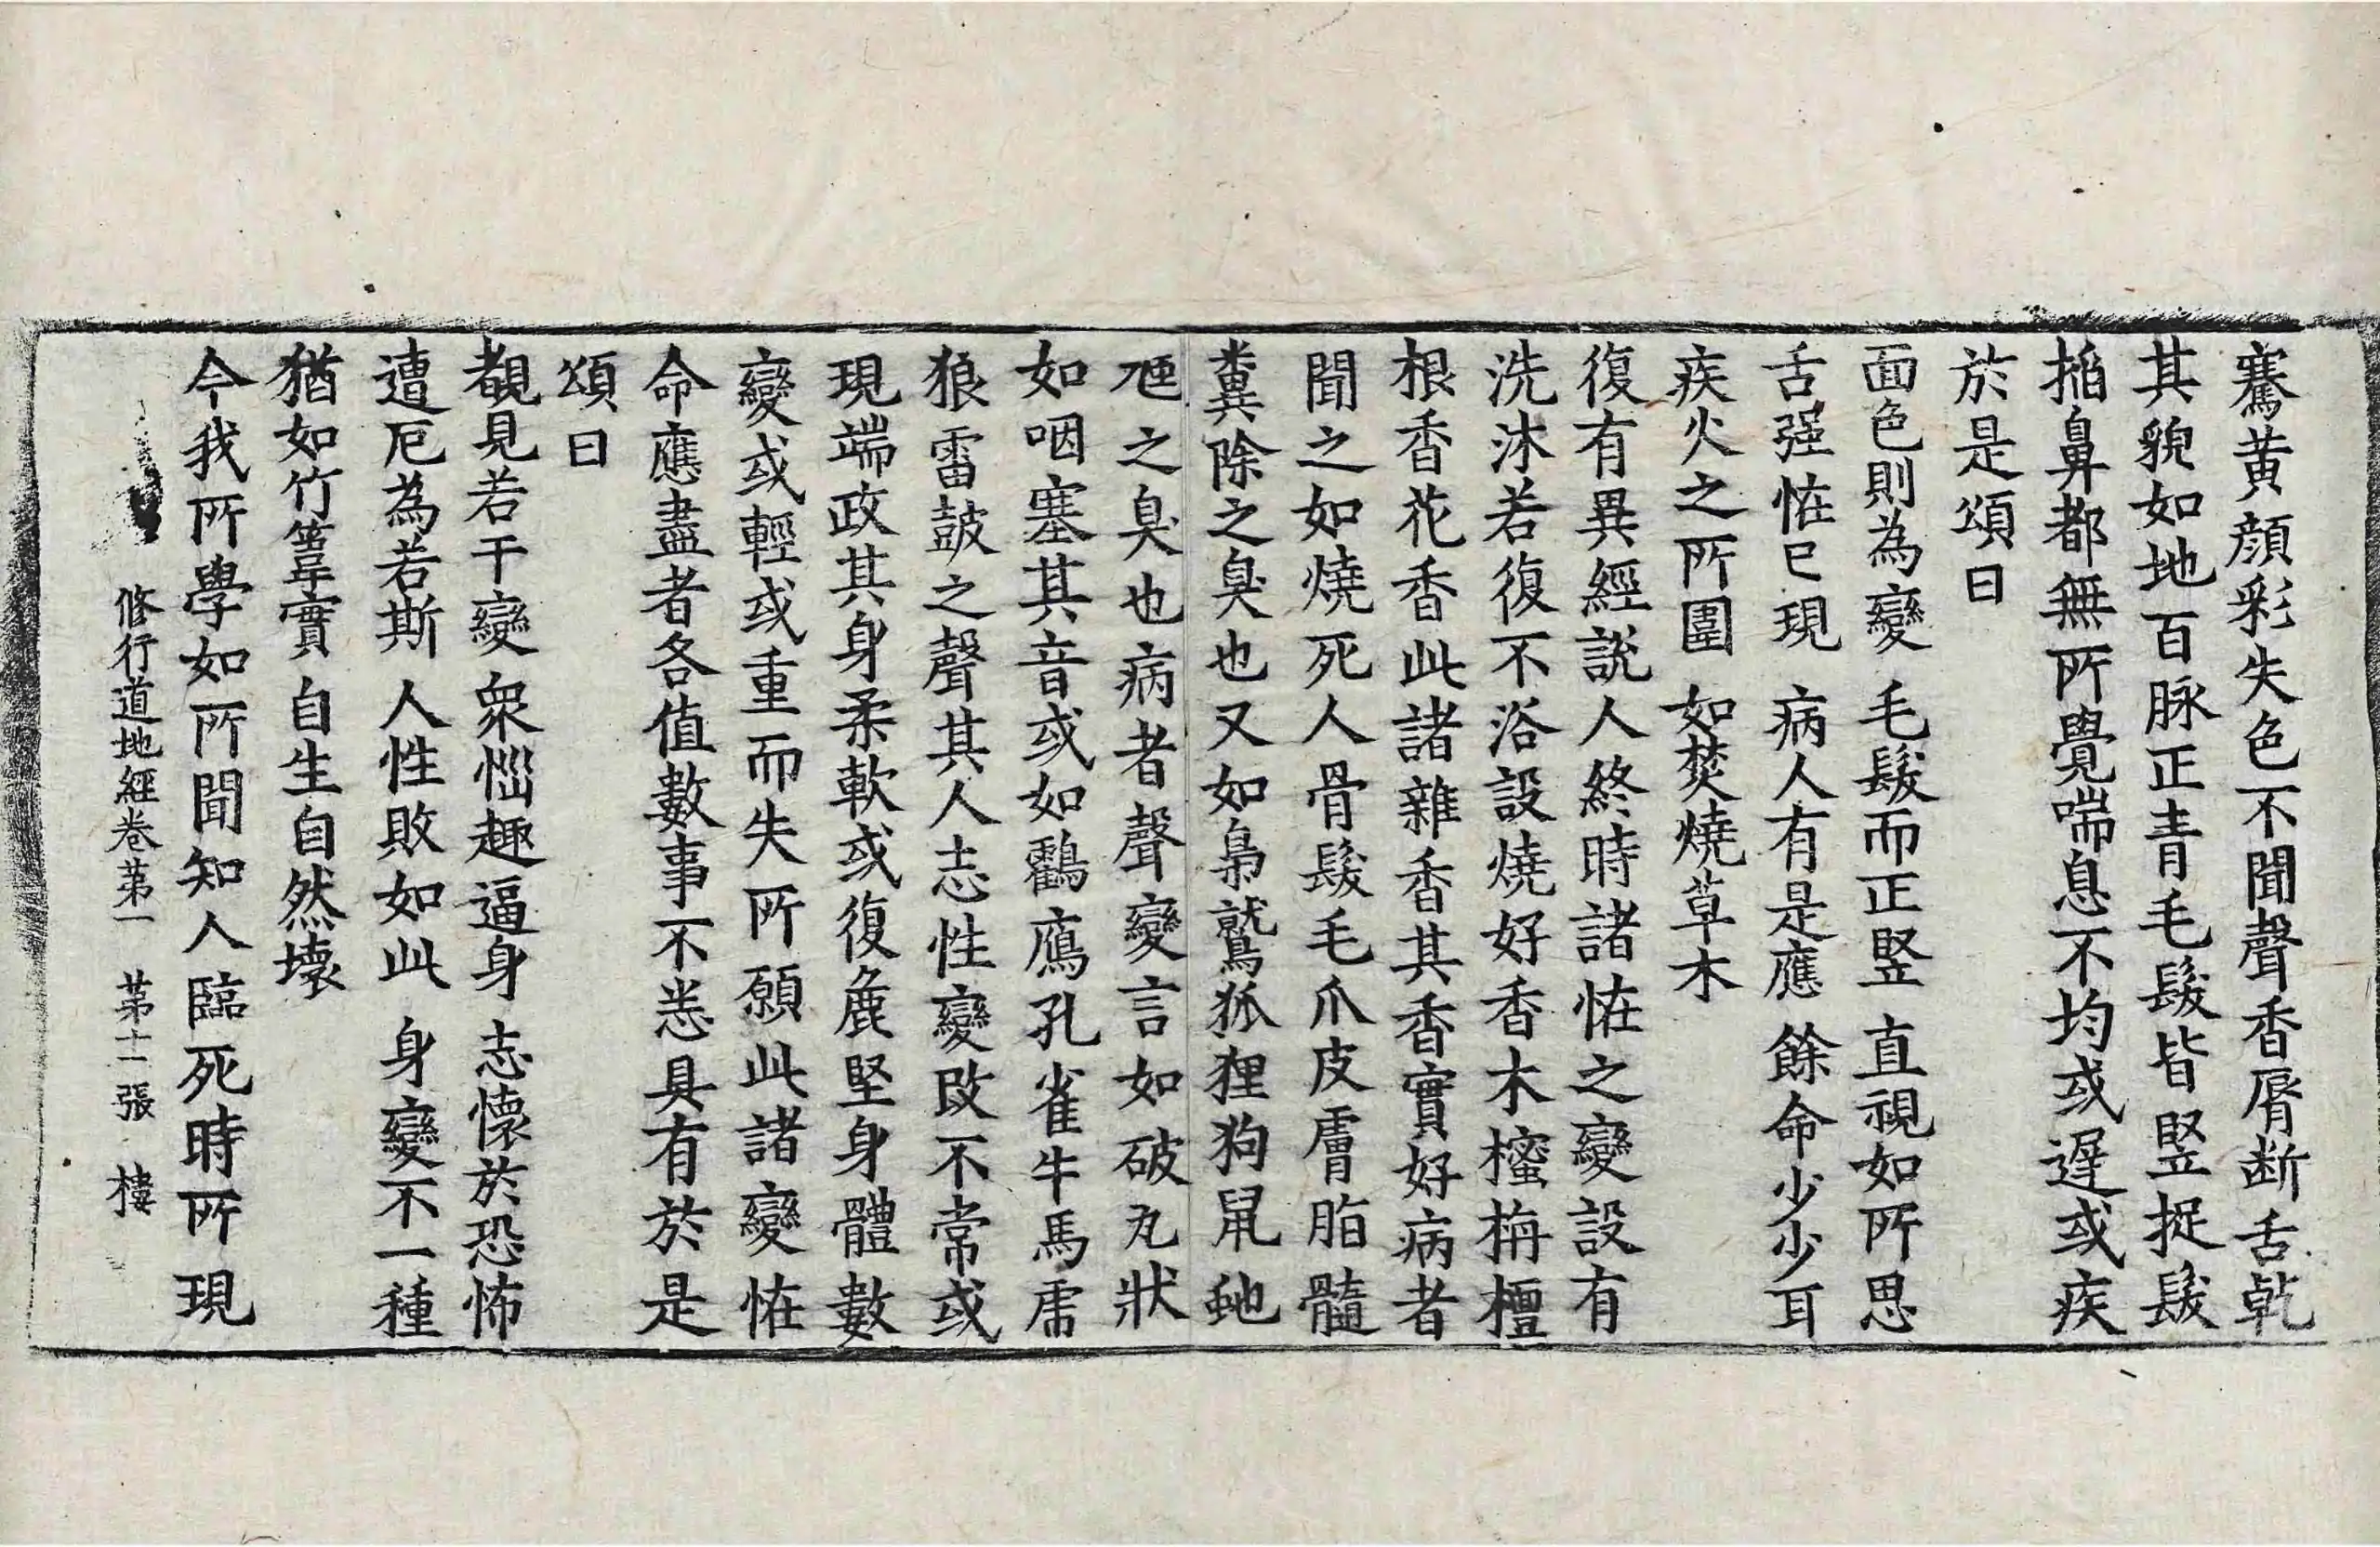 騫黃顔彩失色不聞聲香脣断舌乾
其貌如地百脉正青毛髮皆竪捉髮
搯鼻都無所覺喘息不均或遲或疾
於是頌曰
面色則為變　毛髮而正竪　直視如所思
舌强恠已現　病人有是應　餘命少少耳
疾火之所圍　如焚燒草木
復有異經說人終時諸恠之變設有
洗沐若復不浴設燒好香木櫁栴檀
根香花香此諸雜香其香實好病者
聞之如燒死人骨髮毛爪皮膚脂髓
糞除之臭也又如梟鷲狐狸狗鼠虵
虺之臭也病者聲變言如破瓦狀
如咽塞其音或如鸖鴈孔雀牛馬虎
狼雷鼓之聲其人志性變改不常或
現端政其身柔軟或復麁堅身體數
變或輕或重而失所願此諸變恠
命應盡者各值數事不悉具有於是
頌曰
覩見若干變　衆惱趣逼身　志懷於恐怖
遭厄為若斯　人性敗如此　身變不一種
猶如竹䔖實　自生自然壞
今我所學如所聞知人臨死時所現
修行道地經卷苐一　苐十一張　棲